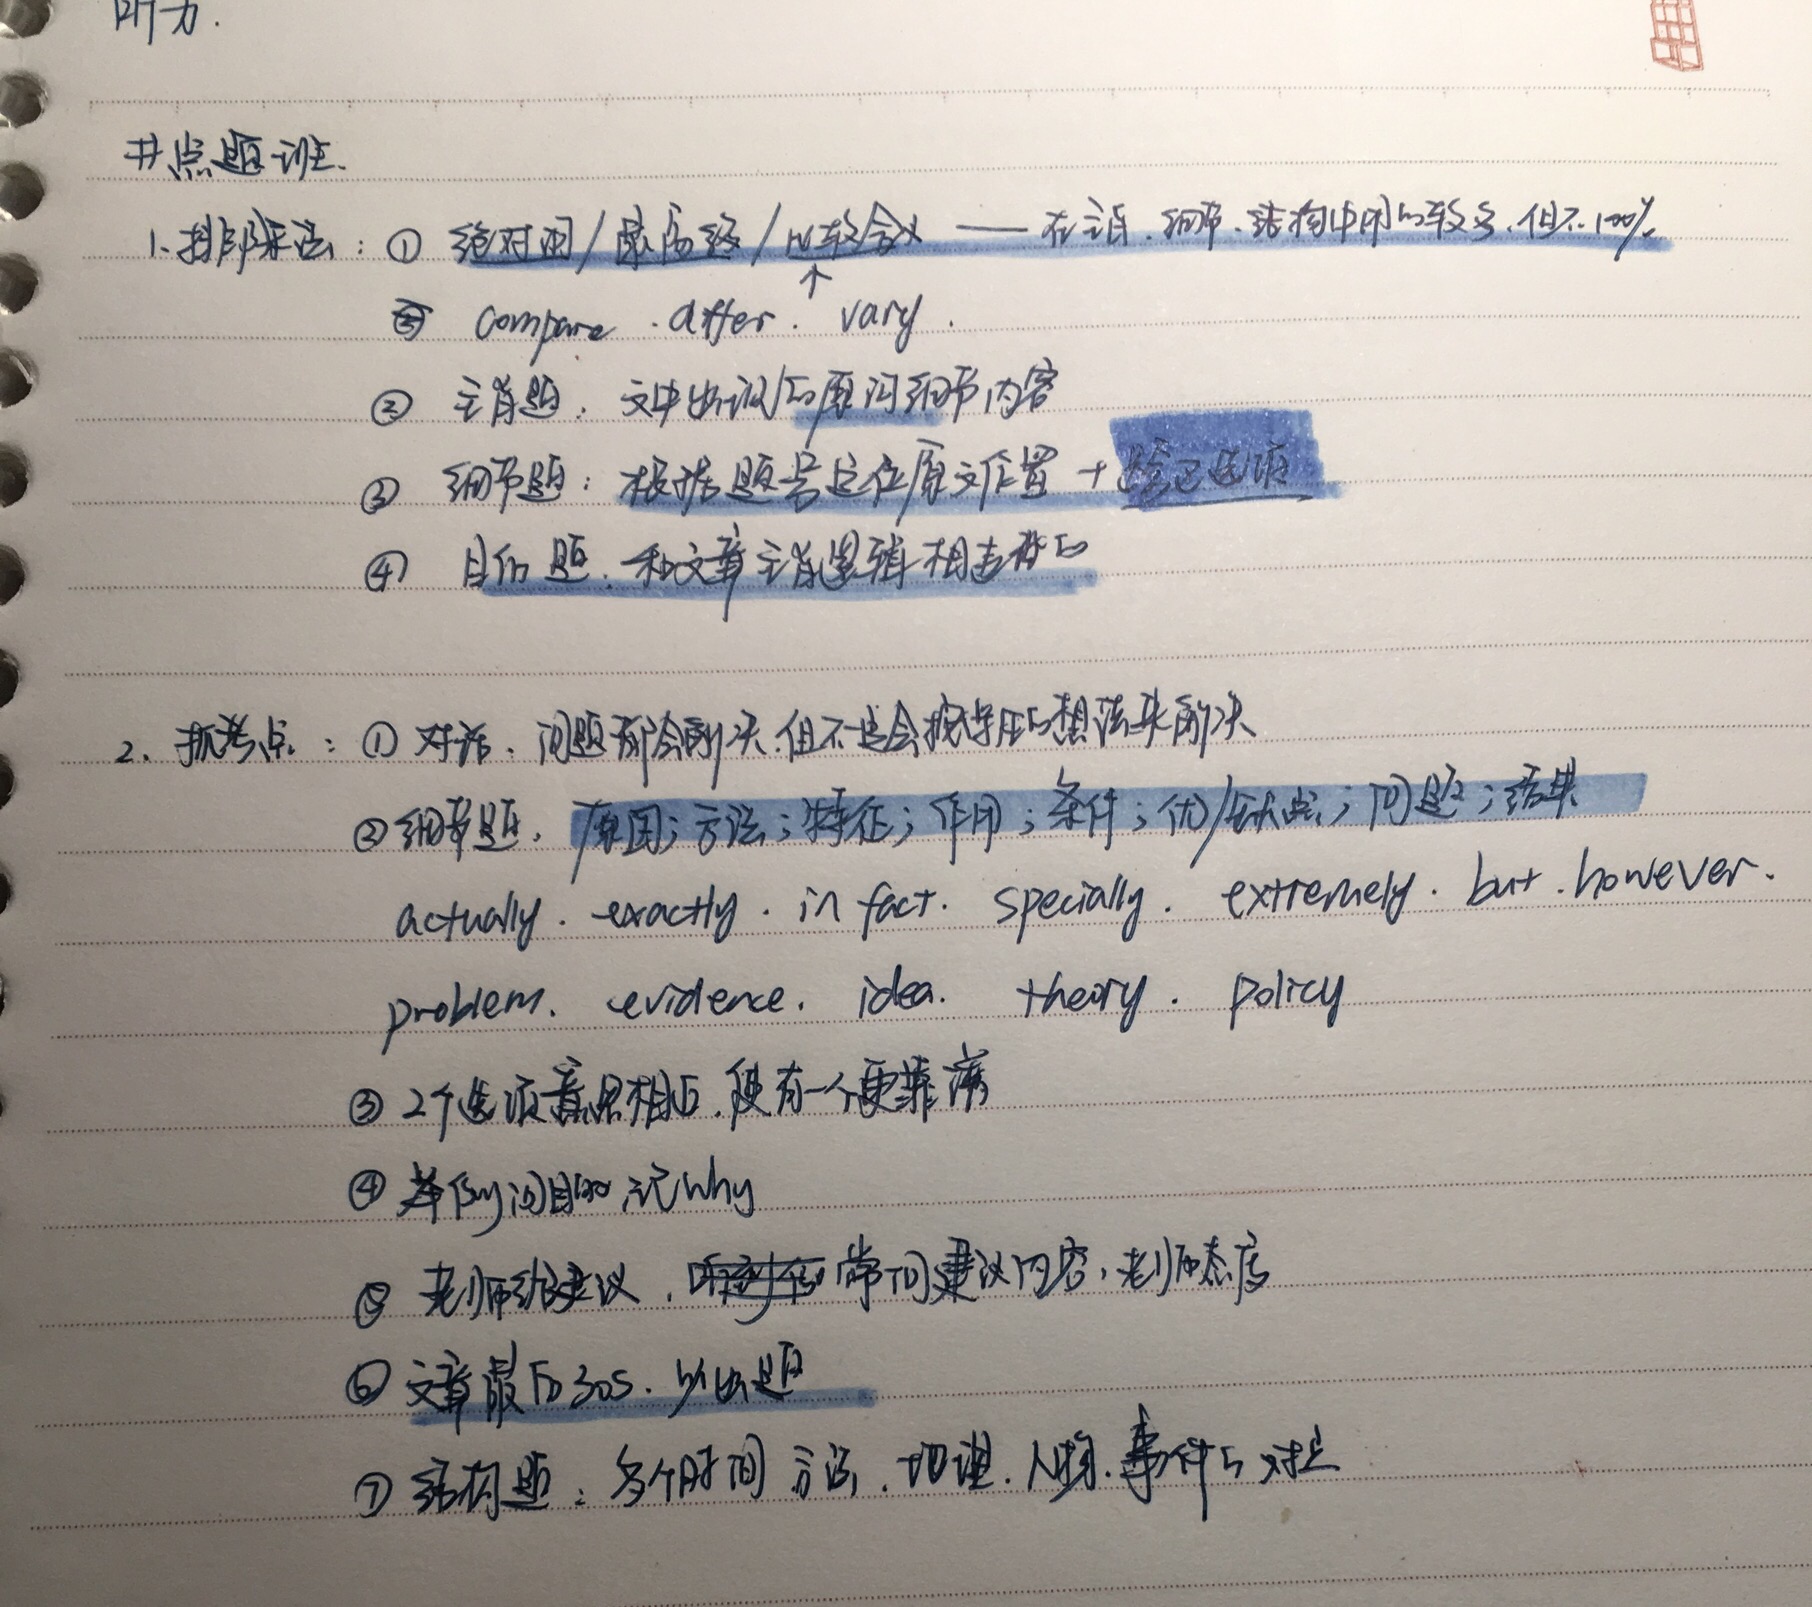 听力.
# 点题班.
1. 排除法：① 绝对词/最高级/比较含义 —— 在主旨.细节.结构中用的较多.但不100%
↑
compare . differ . vary .
② 主旨题：文中出现的原词细节内容
③ 细节题：根据题号定位原文位置 + 选项
④ 目的题：和文章主旨逻辑相违背的
2. 抓考点：① 对话：问题都会解决.但不一定会按学生的想法来解决
② 细节题：原因；方法；特征；作用；条件；优/缺点；问题；结果
actually . exactly . in fact . specially . extremely . but . however .
problem . evidence . idea . theory . policy
③ 2个选项意思相反.便有一个更靠谱
④ 举例问目的 记why
⑤ 老师给建议，常问建议内容，老师态度
⑥ 文章最后30s . 必出题
⑦ 结构题：多个时间 方法 . 地理 . 人物 . 事件的对应